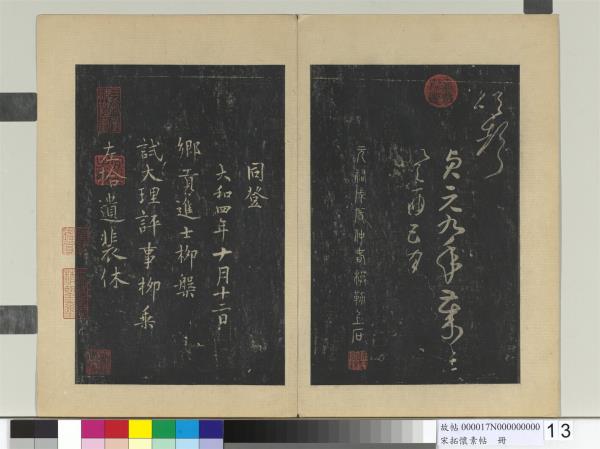 貞元九年歲在
癸酉五月
元祐戊辰仲春模勒上石
同登
大和四年十月十二日
鄉貢進士柳槃
試大理評事柳乘
左拾遺裴休
故帖 000017N000000000
宋拓懷素帖 冊
13